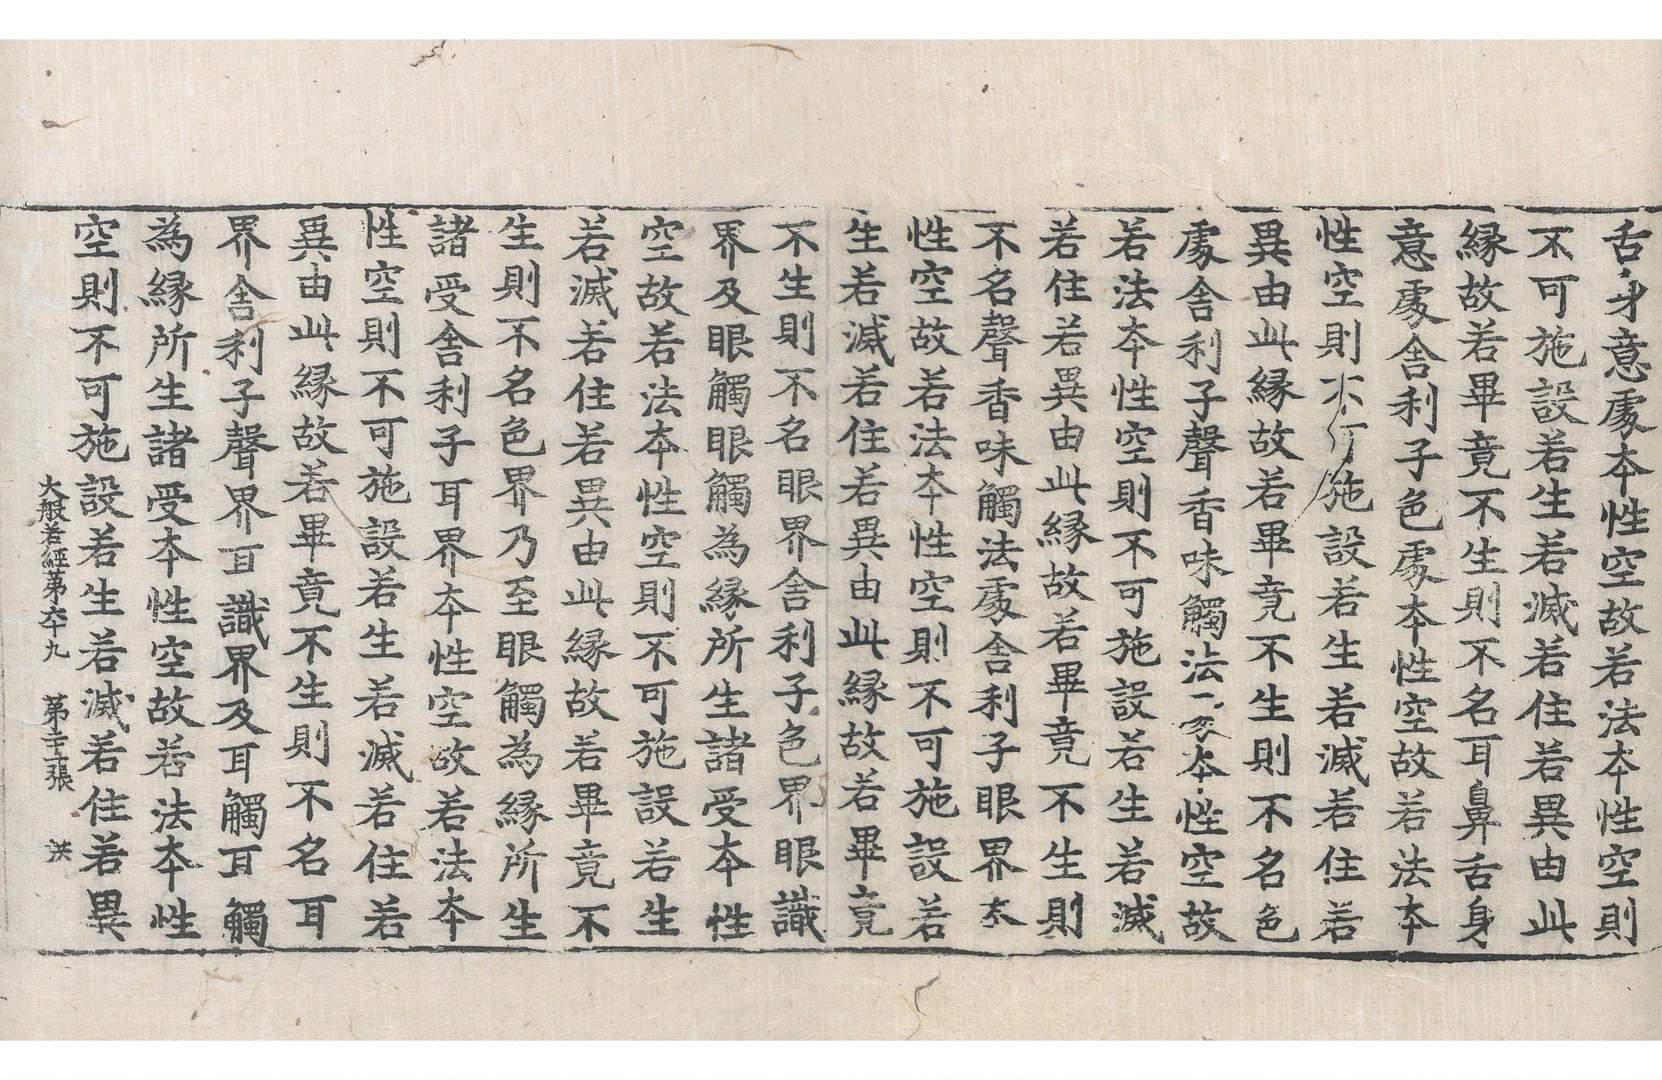 舌身意處本性空故若法本性空則
不可施設若生若滅若住若異由此
縁故若畢竟不生則不名耳鼻舌身
意處舎利子色處本性空故若法本
性空則不可施設若生若滅若住若
異由此縁故若畢竟不生則不名色
處舎利子聲香味觸法處本性空故
若法本性空則不可施設若生若滅
若住若異由此縁故若畢竟不生則
不名聲香味觸法處舎利子眼界本
性空故若法本性空則不可施設若
生若滅若住若異由此縁故若畢竟
不生則不名眼界舎利子色界眼識
界及眼觸眼觸為縁所生諸受本性
空故若法本性空則不可施設若生
若滅若住若異由此縁故若畢竟不
生則不名色界乃至眼觸為縁所生
諸受舎利子耳界本性空故若法本
性空則不可施設若生若滅若住若
異由此縁故若畢竟不生則不名耳
界舎利子聲界耳識界及耳觸耳觸
為縁所生諸受本性空故若法本性
空則不可施設若生若滅若住若異
大般若經第六十九 第十二張 洪